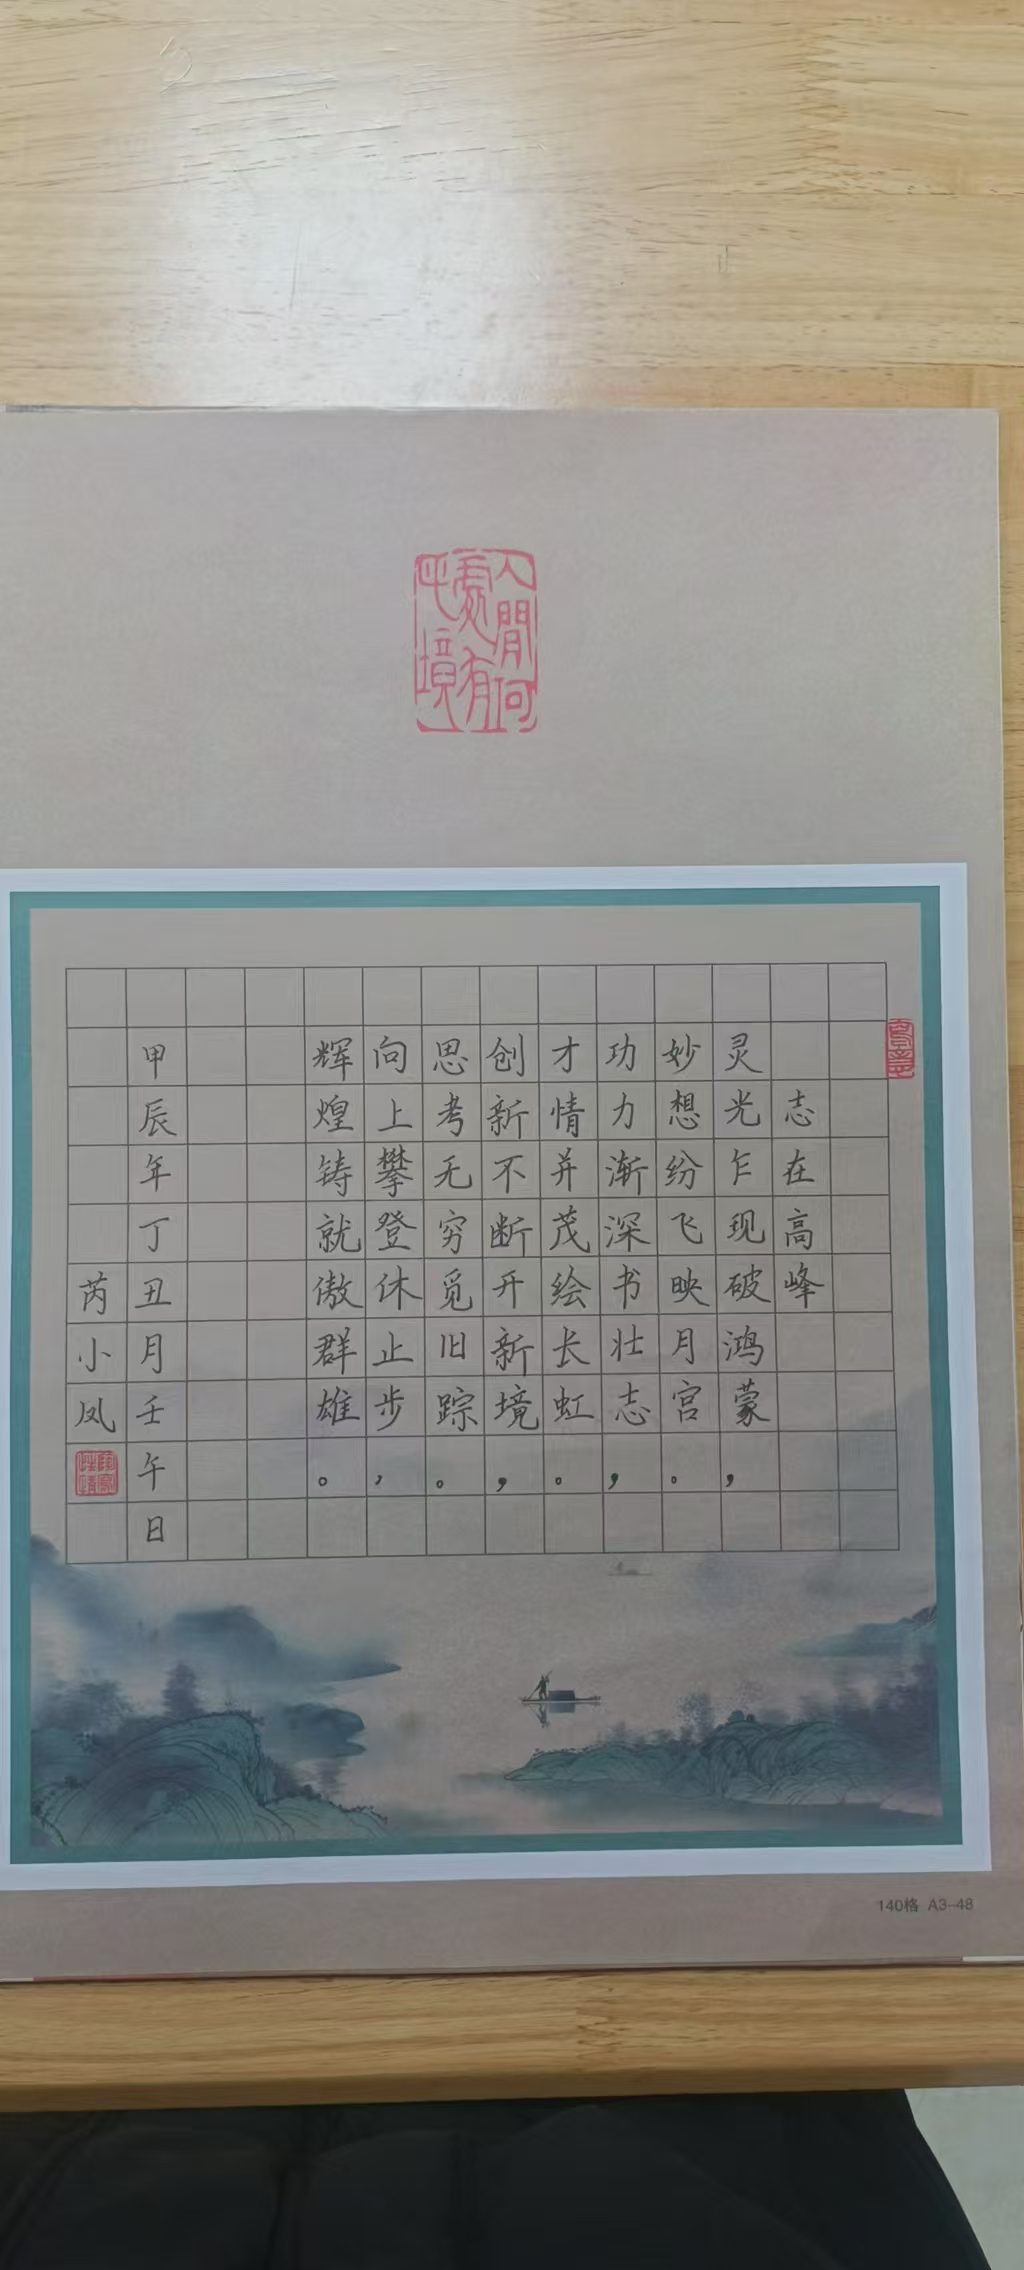 人間何處有此境
志在高峰
灵光乍现破鸿蒙，
妙想纷飞映月宫。
功力渐深书壮志，
才情并茂绘长虹。
创新不断开新境，
思考无穷觅旧踪。
向上攀登休止步，
辉煌铸就傲群雄。
甲辰年丁丑月壬午日
芮小凤
140格 A3-48